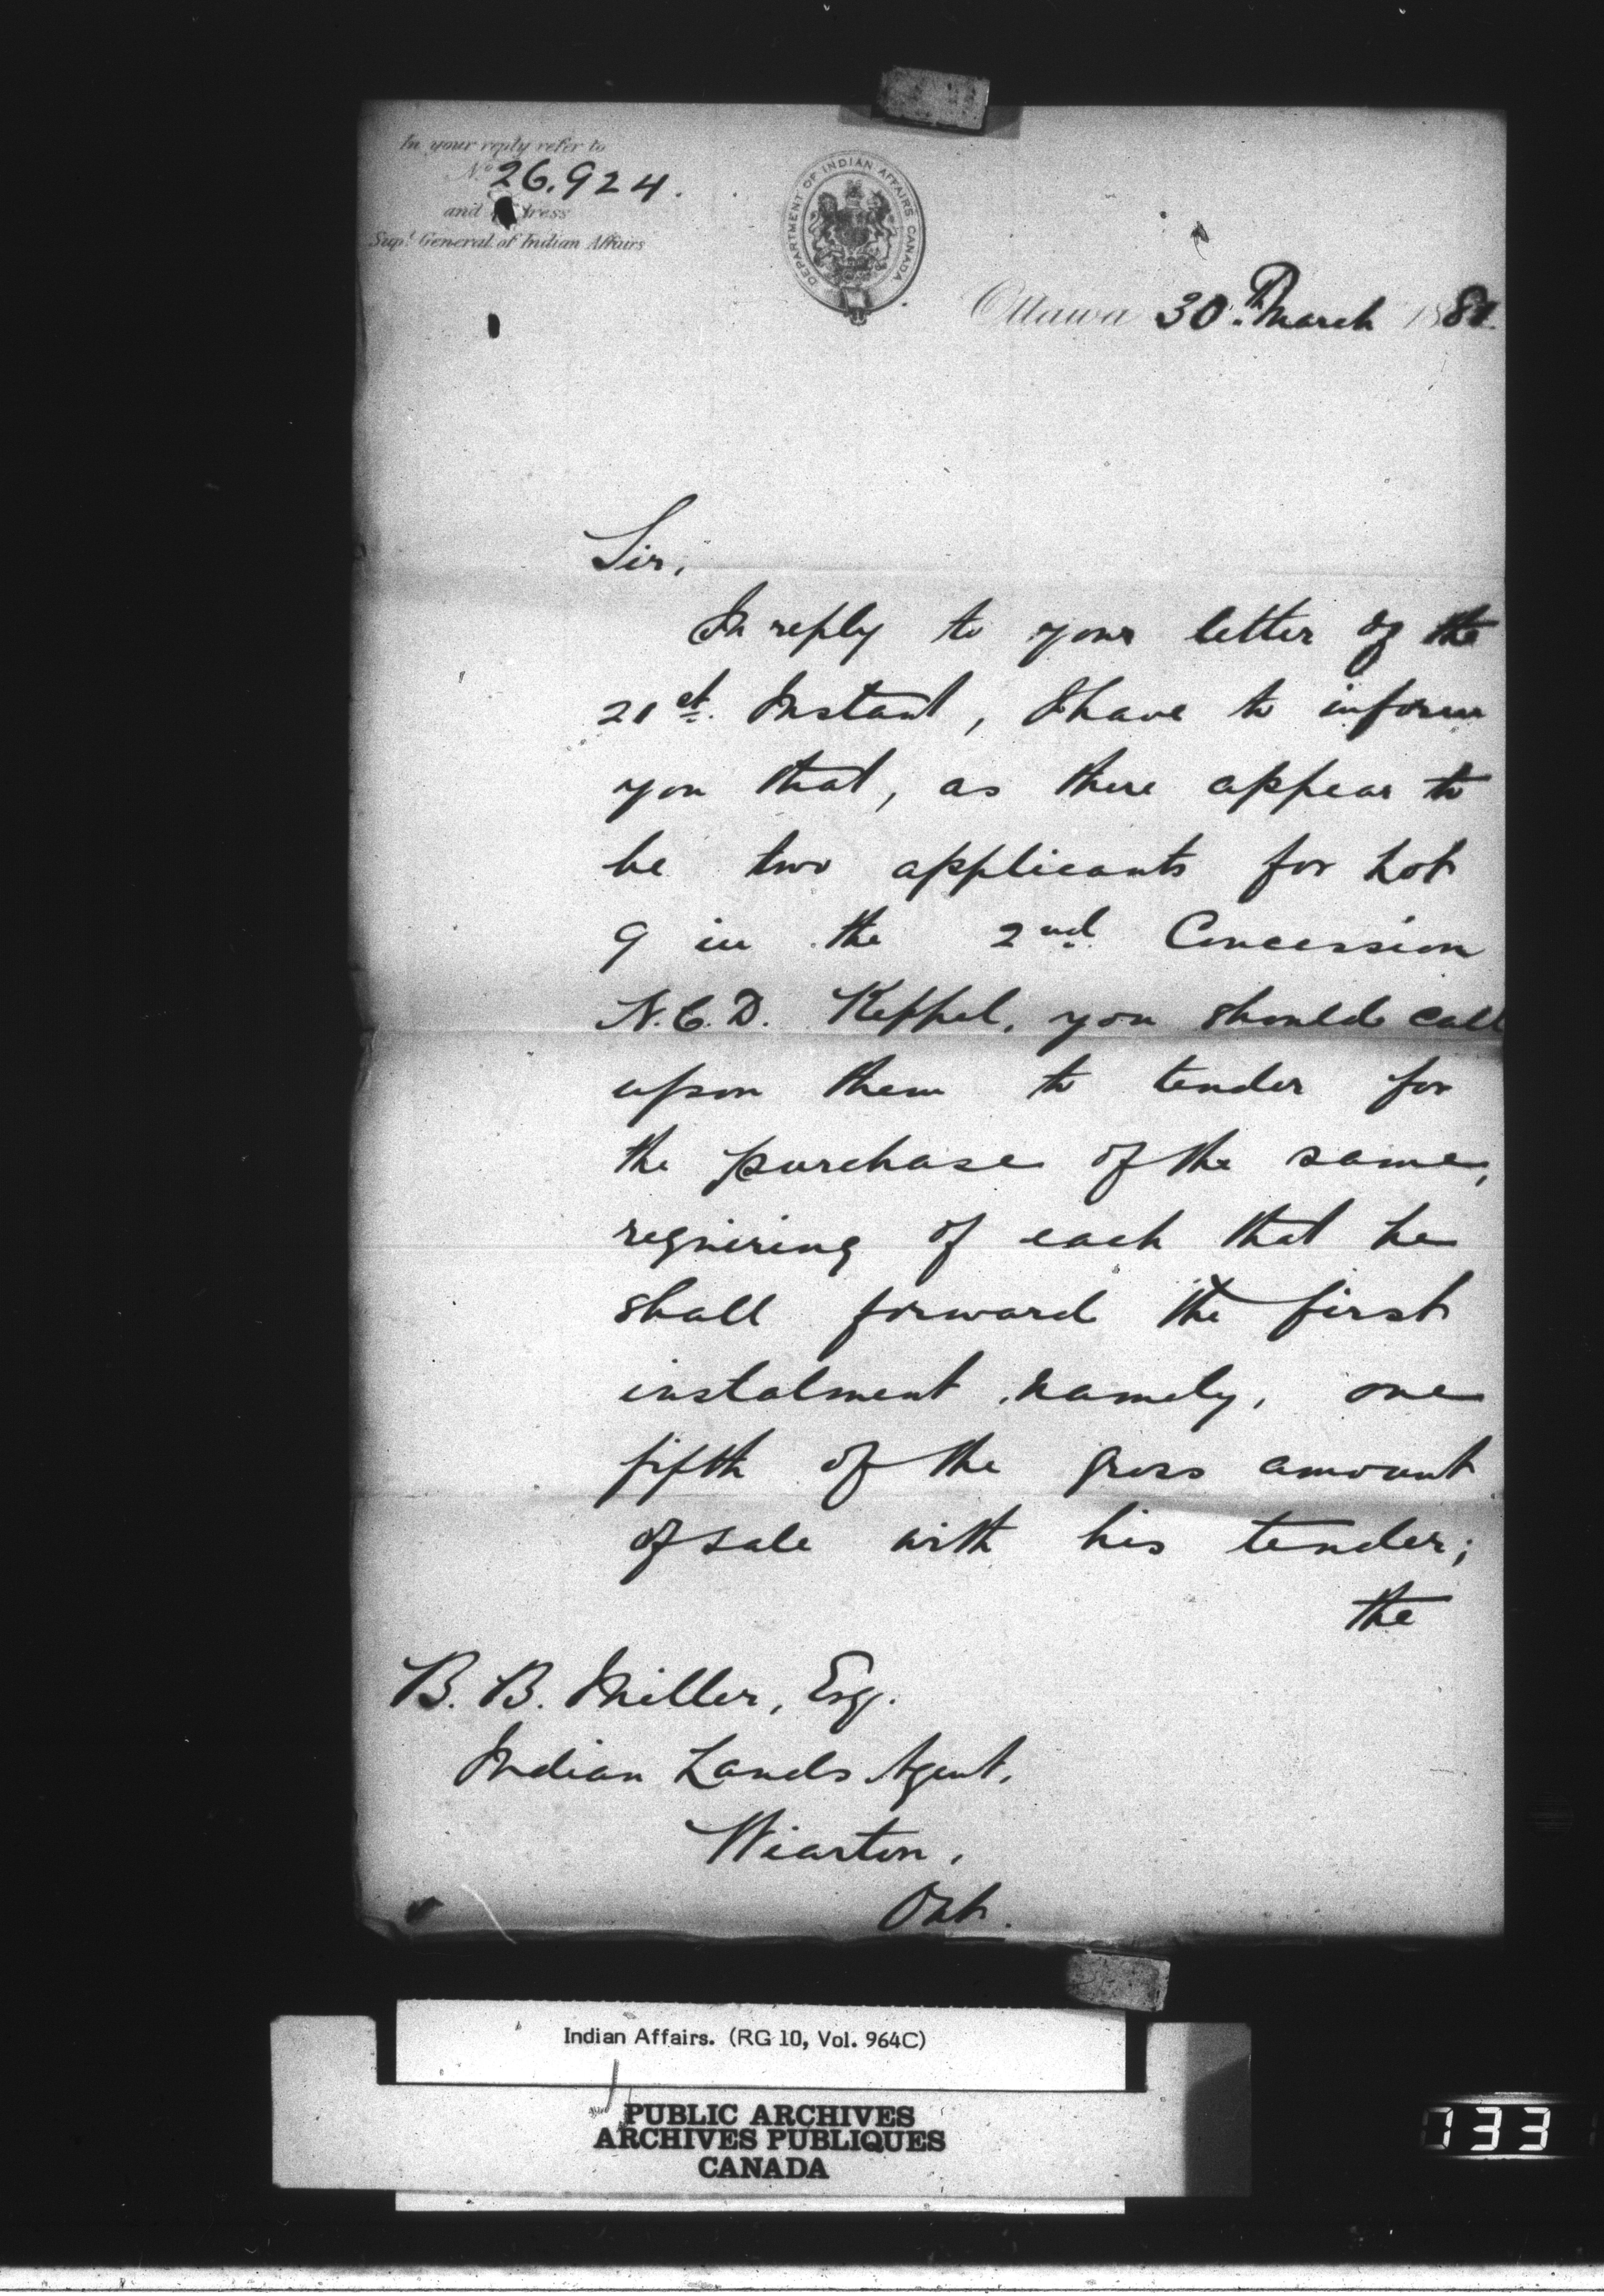 In your reply refer to
No. 26.924.
and address
Supt. General of Indian Affairs
DEPARTMENT OF INDIAN AFFAIRS CANADA
Ottawa 30.th March 1881.
Sir,
In reply to your letter of the
21st. Instant, I have to inform
you that, as there appear to
be two applicants for Lot
9 in the 2nd. Concession
N.C.D. Keppel, you should call
upon them to tender for
the purchase of the same,
requiring of each that he
shall forward the first
instalment, namely, one
fifth of the gross amount
of sale with his tender;
the
B. B. Miller, Esq.
Indian Lands Agent.
Wiarton,
Ont.
Indian Affairs. (RG 10, Vol. 964C)
PUBLIC ARCHIVES
ARCHIVES PUBLIQUES
CANADA
733